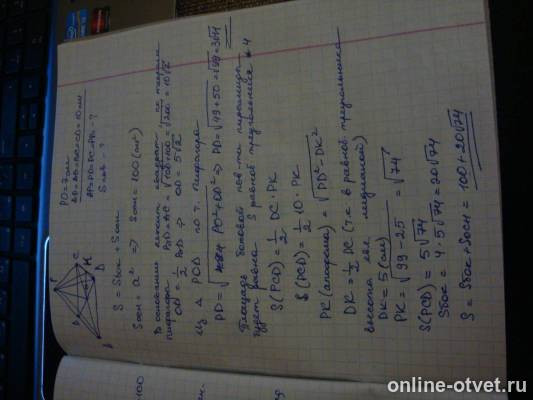 PO=7см
AB=AD=BC=CD=10мм
AP=PD=PC=PB-?
Sпов-?
P
A
B
C
K
D
S = Sбок = Sосн
Sосн = a² => Sосн = 100 (мм²)
В основании лежит квадрат по теореме
пифагора BD=AC = √100+100 = √200 = 10√2
OD = 1/2 BD => OD = 5√2
Из Δ POD по т. пифагора
PD = √PO²+OD² => PD = √49+50 = √99 = 3√11
Площадь боковой пов-ти пирамиды
будет равна S равноб треугольника * 4
S(PCD) = 1/2 DC · PK
S(PCD) = 1/2 10 · PK
PK (апофема) = √PD²-DK²
DK = 1/2 DC (т.к. в равноб треугольнике
высота явл медианой)
DK = 5 (см)
PK = √99-25 = √74
S(PCD) = 5√74
Sбок = 4·5√74 = 20√74
S = Sбок + Sосн = 100+20√74
online-otvet.ru